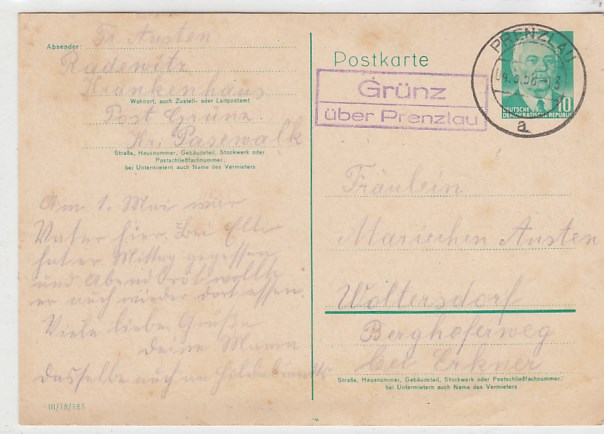 Absender: Fr. Austen
Radewitz
Krankenhaus
Wohnort, auch Zustell- oder Leitpostamt
Post Grünz
Krs. Pasewalk
Straße, Hausnummer, Gebäudeteil, Stockwerk oder
Postschließfachnummer;
bei Untermietern auch Name des Vermieters
Am 1. Mai war
Vater hier. Bei Elli
hat er Mittag gegessen
und Abendbrot wollte
er auch wieder dort essen.
Viele liebe Grüße
deine Mama
dasselbe auch an
III/18/185
Postkarte
Grünz
über Prenzlau
PRENZLAU
a
DEUTSCHE
DEMOKRATISCHE REPUBLIK
10
Fräulein
Mariechen Austen
Woltersdorf
Berghoferweg
bei Erkner
Straße, Hausnummer, Gebäudeteil, Stockwerk oder Postschließfachnummer;
bei Untermietern auch Name des Vermieters